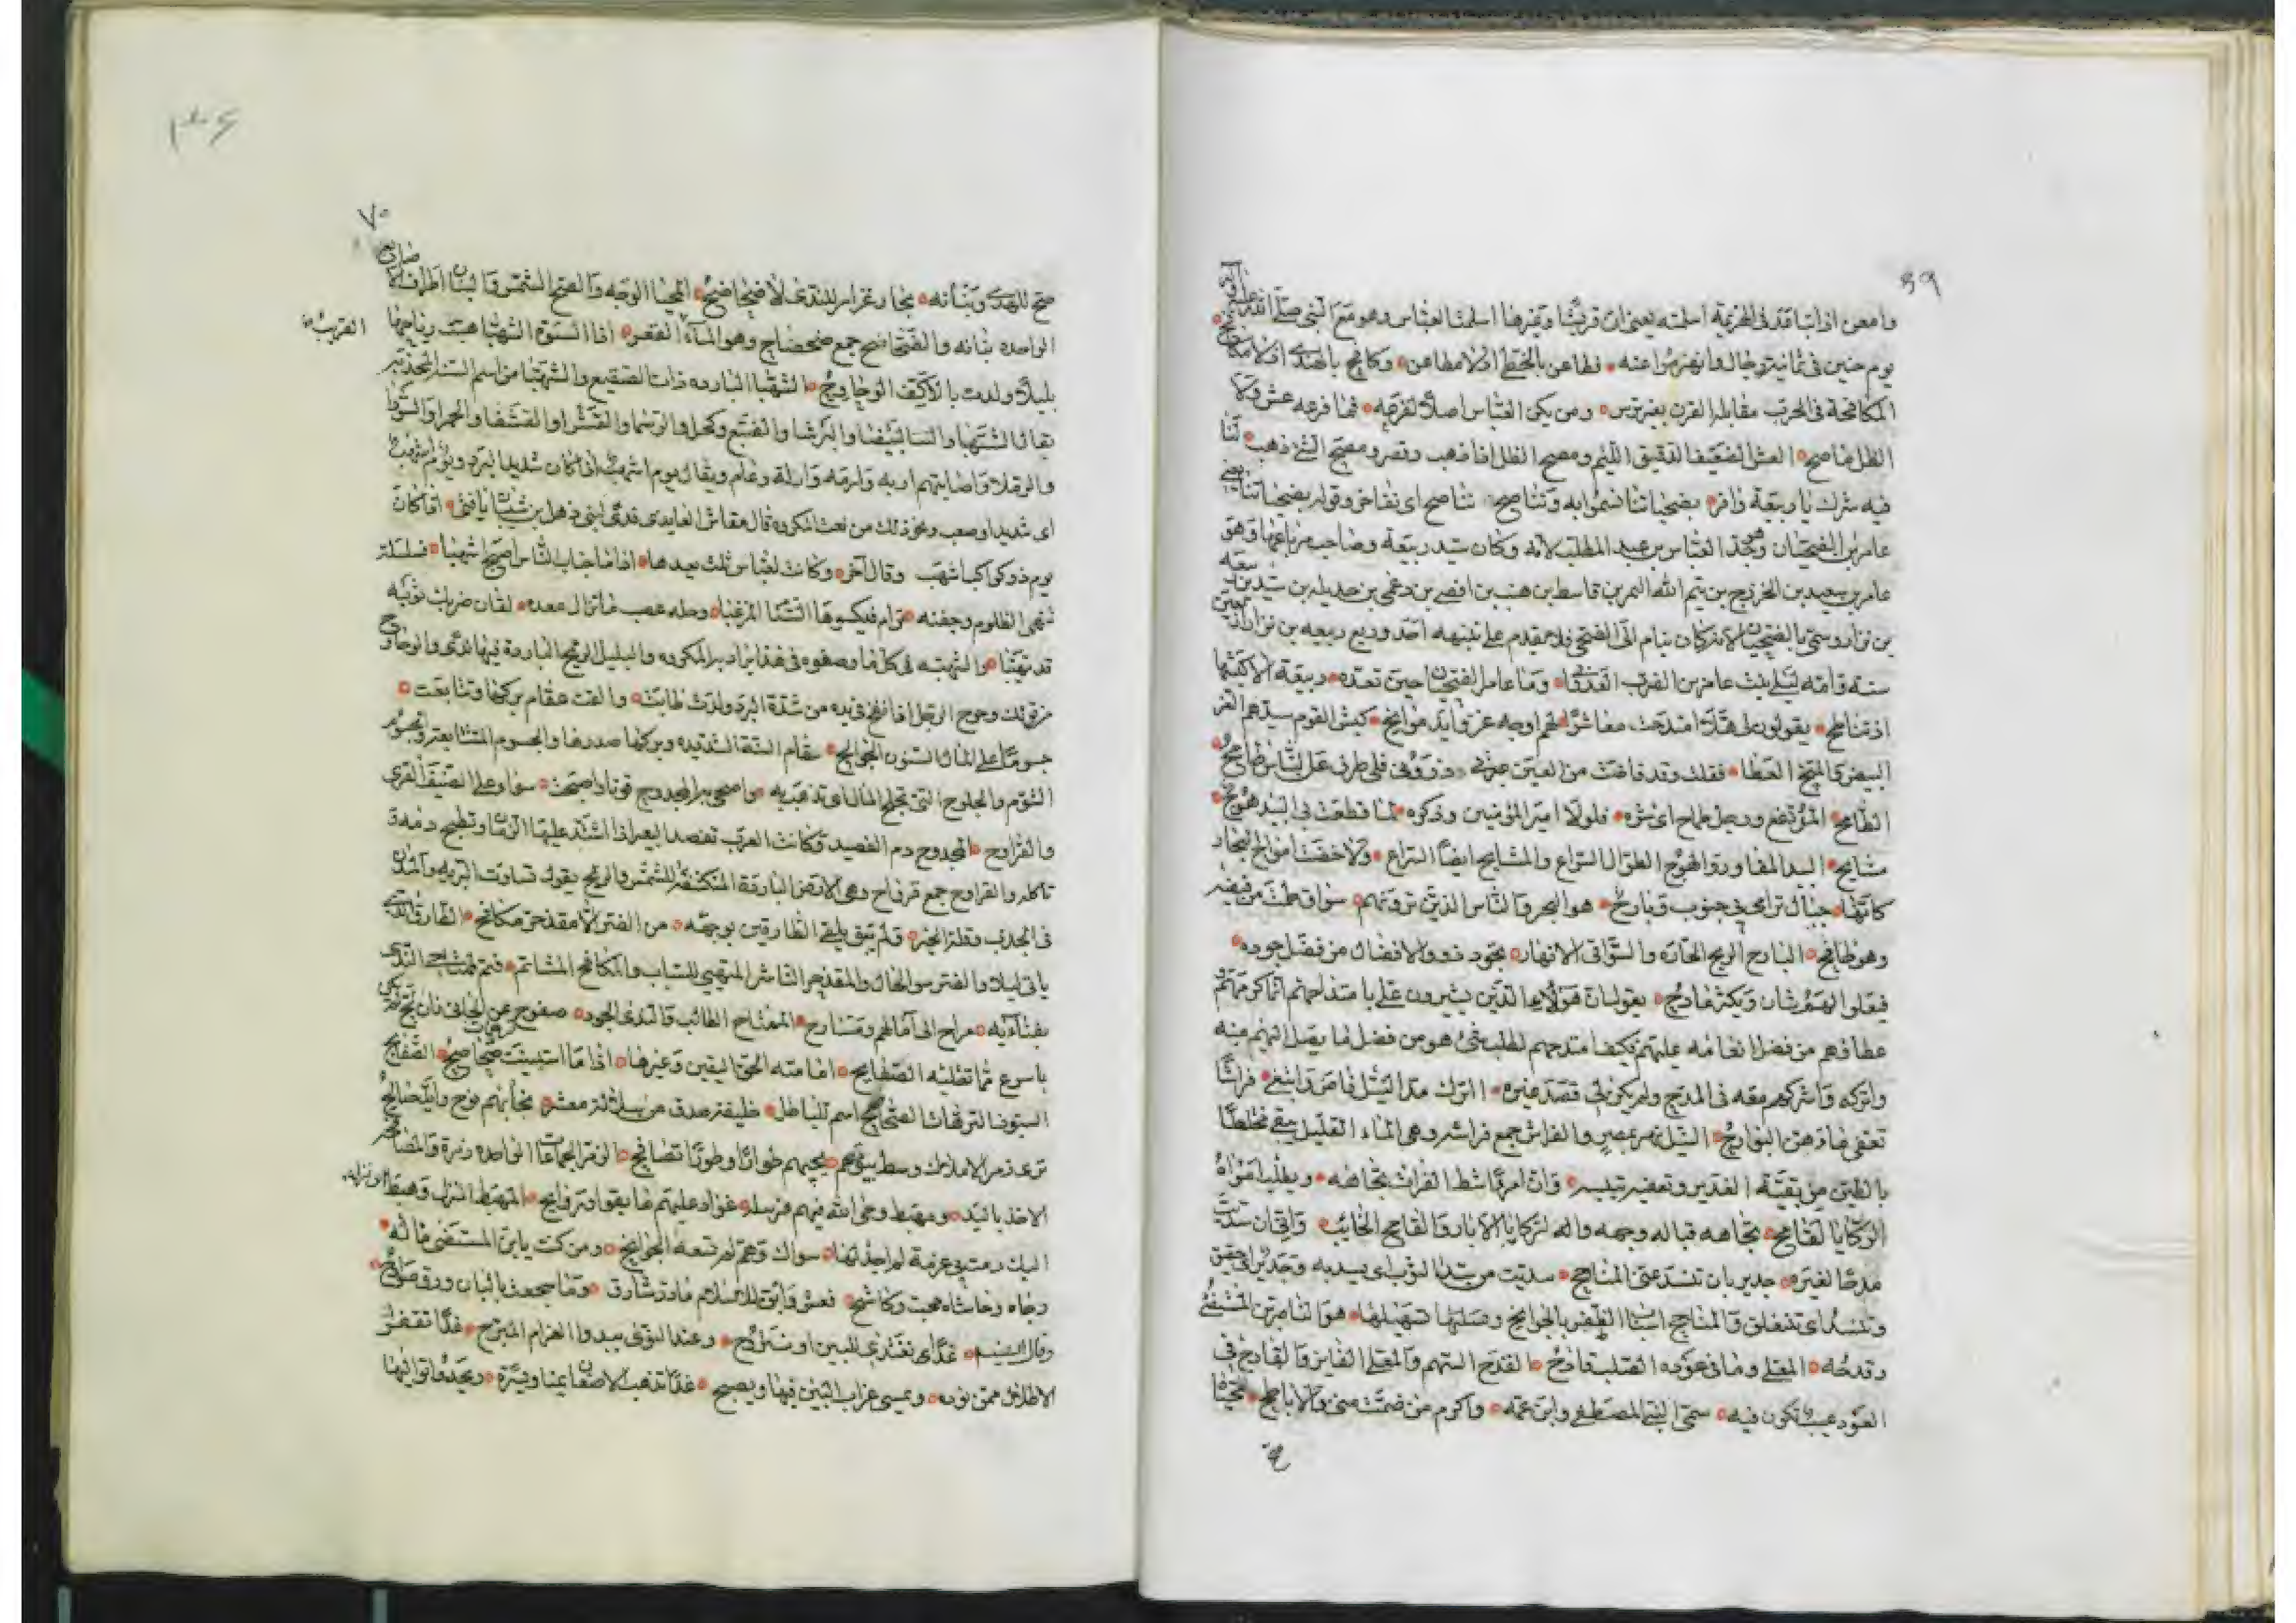 ٥٩
وامعن اذ اتباقد فى الهزيمة اسلمته يعنى ان قريشا وغيرها اسلمت العباس وهو مع النبى صلى الله عليه
يوم حنين فى ثمانية رجال وانهزموا عنه فطاعن بالخطى اذ لا مطاعن وكافح بالهندى اذ لا مكافح
المكافحة فى الحرب مقابلة القرن بغير ترس ومن يكن العباس اصلا لفرعه فما فرعه عش ولا
الظل ماصح العش الضعيف الدقيق اللئيم ومصح الظل اذا ذهب وقصر ومصح الشئ ذهب لنا
فيه شرك يا ربيعة وافر بضحياننا نسموا به ونناصح نناصح اى نفاخر وقوله بضحياننا يعنى
عامر بن الضحيان وهو جد العباس بن عبد المطلب لامه وكان سيد ربيعة وصاحب مرباعها وهو
عامر بن سعيد بن الخزرج بن تيم الله النمر بن قاسط بن هنب بن افصى بن دعمى بن جديله بن
بن نزار وسمى بالضحيان لانه كان ينام الى الضحى فلا يقدم على تنبهه احد وربع ربيعه بن نزار
سنة وامه ليلى بنت عامر بن الضرب العدوانى وما عامر الضحيان حين تعده ربيعة الا كبشها
اذ تناطح يقولون لى هلا امتدحت معاشرا لهم اوجه غر وايد موايح كبش القوم سيدهم الغر
البيض والميح العطا فقلت وقد فاضت من العين عبرتى وزوونى فلى طرفى عن الناس طامح
الطامح المرتفع ورجل طماح اى شره فلولا امير المؤمنين وذكره لما قطعت بى البيد هوج
مشايح البيد المفاوز والهوج الطوال السراع والمشايح ايضا السراع ولا خضت امواج البحار
كانها جبال ترامى بى جنوب وبارح هو البحر والناس الذين ترونهم سواق طمت من فيضه
وهو طافح البارح الريح الحاره والسواقى الانهار يجود ذوو الافضال من فضل جوده
فيعلوا لهم شان ويكثر مادح يقول ان هؤلاء الذين يشيرون على بامتداحهم انما كرمهم
عطاؤهم من فضل انعامه عليهم فكيف امتدحهم لطلب شئ هو من فضل ما يصل اليهم منه
واتركه واشركهم معه فى المدح ولم يكن لى قصد غيره اترك مد النيل فاض وابتغى فراشا
تعفى ماؤهن البوارح النيل نهر بمصر والفراش جمع فراشه وهى الماء القليل يبقى مختلطا
بالطين من بقية الغدير وتصغير تيليه وان امرءا شط الفرات تجاهه ويطلب امواه
الركايا لقامح تجاهه قباله وجهه والركايا الابار والقامح الخائب وانى ان سديت
مدحا لغيره جدير بان تنسد عنى المناجح سديت من سدى الثوب اى يسد به وجدير اى حقيق
وتنسد اى تنغلق والمناجح اسباب الظفر بالحوايج وصلها تسهيلها هو الناصر بن المستضى
وقدحه المعلى وما فى عوده الصلب قادح القدح السهم والمعلى الفايز والقادح فى
العود عيب تكون فيه سمى النبى المصطفى وابن عمه واكرم من ضمت منى والاباطح محيا
٧٠
صح للهدى وبنانه بحار غزار للندى لا ضحاضح المحيا الوجه والصح الشمس والبنان اطراف
الواحده بنانه والضحاضح جمع ضحضاح وهو الماء القريب القعر اذا السنوة الشهبا هبت رياحها
بليلا ولدت بالاكف الوحاوح الشهبا البارده ذات الصقيع والشهبا من اسم السنة المجدبة
يقال الشهبا والبيضا والبرشا والضبع وكحل والرشما والقشرا والقشفا والحمرا والسودا
والرملا واصابتهم ازبه وازمه وازلة وعام ويقال يوم اشهب اذا كان شديد البرد ويوم اشهب
اى شديد او صعب ونحو ذلك من نعت المكروه قال مقاس العايدى فدى لبنى ذهل بن شيبان ناقتى اذا كان
يوم ذو كواكب اشهب وقال آخر وكانت لعباس ثلث يعدها اذا ما جناب الناس اصبح اشهبا فسلسلة
تنهى الظلوم وجفنة توام فيكسوها السنام المرغبا وحله عصب ما تزال معده لقان ضريك ثوبه
قد تهببا والشهبه فى كل ما وصفوه فى هذا يراد به المكروه والبليل الريح الباردة فيها ندى والوحاوح
من قولك وحوح الرجل اذا نفخ فى يده من شدة البرد ولدت طابت والقت عقام بركها وتتابعت
حسوما على المال السنون الجوالح عقام السنة الشديده وبركها صدرها والحسوم المتتابعة والحسوم
الشؤم والجلوح التى تجلح المال اى تذهب به وامسى بها المجدوح قوتا واصبحت سواء على الضيف القرى
والقراوح المجدوح دم الفصيد وكانت العرب تفصد البعير اذا اشتد عليها الزمان وتطبخ دمه
تاكله والقراوح جمع قرواح وهى الارض البارزة المنكشفة للشمس والريح يقول تساوت البريه والمدن
فى الجدب وقلة الخير ولم يبق يلقى الطارقين بوجهه من الضر الا مقذحر مكافح الطارق الذى
ياتى ليلا والضر سو الحال والمقذحر الناشر المتهيئ للسباب والمكافح المشاتم فثم تمتاح الندى
بفنائه مراح الى آمالهم ومسارح الممتاح الطالب والندى الجود صفوح عن الجانى وان لج
باسرع مما تطلبه الصفايح امامته الحق اليقين وغيرها اذا ما استبينت ترهات صحاصح الصفايح
السيوف الترهات الصحاصح اسم للباطل خليفة صدق من سلالة معشر محابهم فوج وايك صالح
ترى زمر الاملاك وسط بيوتهم تحييهم طوراً وطورا تصافح الزمر الجماعات الواحده زمرة والمصافحه
الاخذ باليد ومهبط وحى الله فيهم فرسله غواد عليهم ما بقوا وتراوح المهبط المنزل وهبط اى نزل
اليك رمت بى عزمة لم اجد لها سواك وهم لم تسعه الجوانح ومن كنت يا بن المستضى ماله
رجاه وحاشاه محبت وكاشح فعش وابق للاسلام ما ذر شارق وما سجعت بالبان ورق صوادح
وقال ايضا غدا نغتدى للبين او نتروح وعند النوى يبدوا الغرام المبرح غدا تقفر
الاطلال ممن نوده ويمسى غراب البين فيها ويصبح غدا تذهب الاضغان يمنا ويسرة ويحدوا تواليها